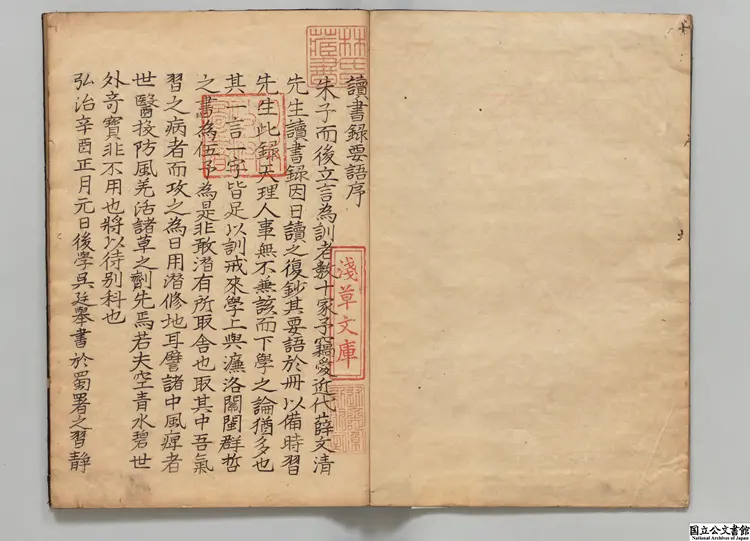 讀書録要語序
朱子而後立言為訓者數十家予竊愛近代薛文清
先生讀書録因日讀之復鈔其要語於冊以備時習
先生此録天理人事無不兼該而下學之論猶多也
其一言一字皆足以訓戒來學上與濂洛關閩群哲
之書為伍予為是非敢潜有所取舎也取其中吾氣
習之病者而攻之為日用潜修地耳譬諸中風痺者
世醫投防風羗活諸草之劑先焉若夫空青水碧世
外奇寶非不用也將以待别科也
弘治辛酉正月元日後學吳廷舉書於蜀署之習靜
林氏藏書
淺草文庫
国立公文書館
National Archives of Japan